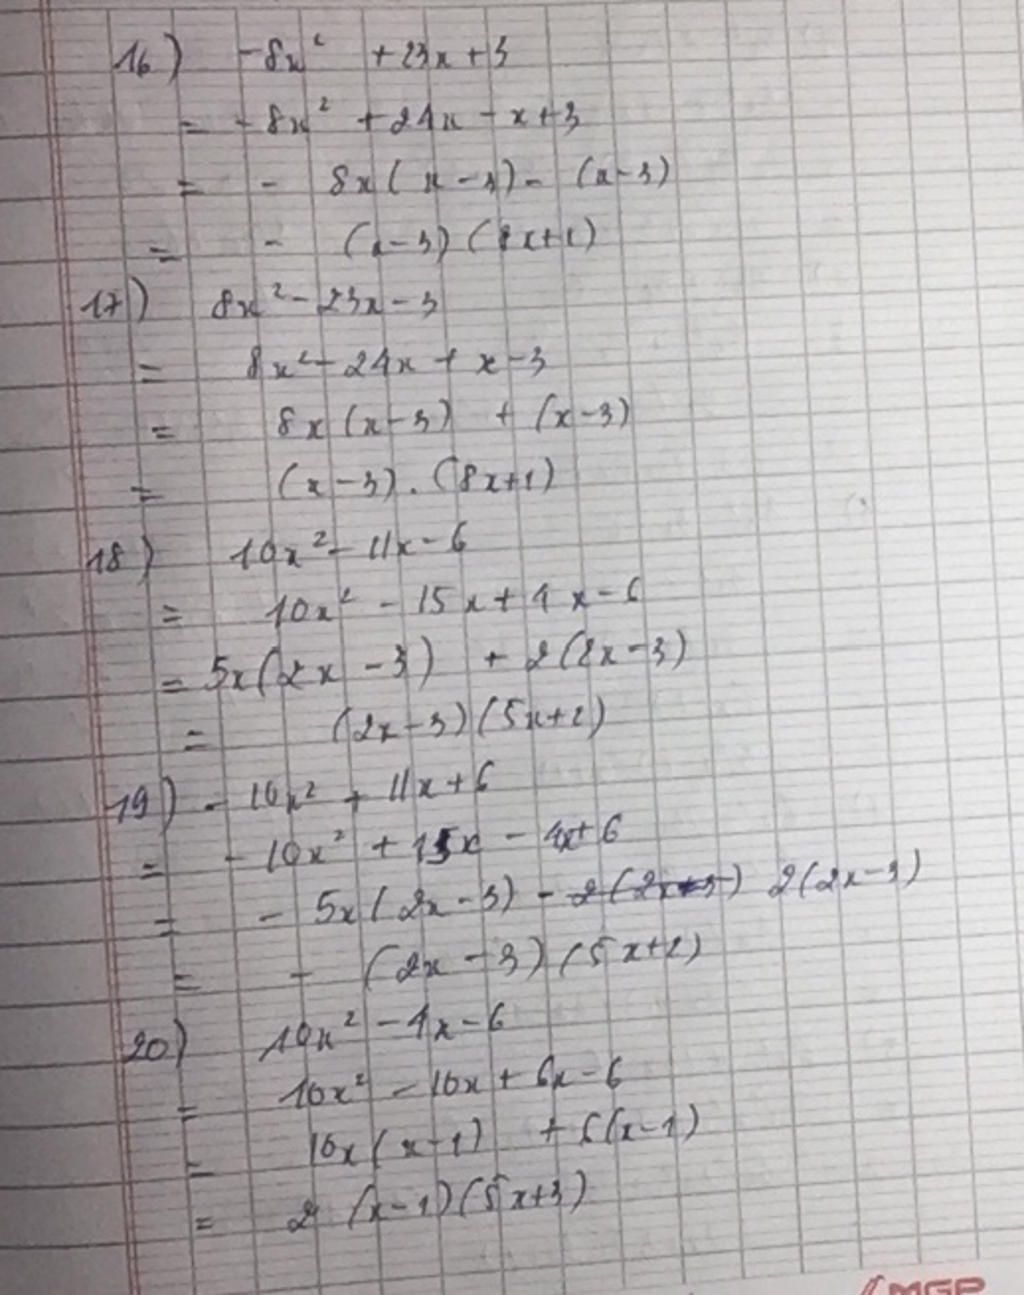 16) -8x² + 23x + 3
= -8x² + 24x - x + 3
= - 8x(x - 3) - (x - 3)
= - (x - 3) (8x + 1)
17) 8x² - 23x - 3
= 8x² - 24x + x - 3
= 8x (x - 3) + (x - 3)
= (x - 3) . (8x + 1)
18) 10x² - 11x - 6
= 10x² - 15x + 4x - 6
= 5x(2x - 3) + 2(2x - 3)
= (2x - 3)(5x + 2)
19) - 10x² + 11x + 6
= - 10x² + 15x - 4x + 6
= - 5x(2x - 3) - 2(2x - 3)
= - (2x - 3)(5x + 2)
20) 10x² - 4x - 6
= 10x² - 10x + 6x - 6
= 10x(x - 1) + 6(x - 1)
= 2 (x - 1)(5x + 3)
MGP